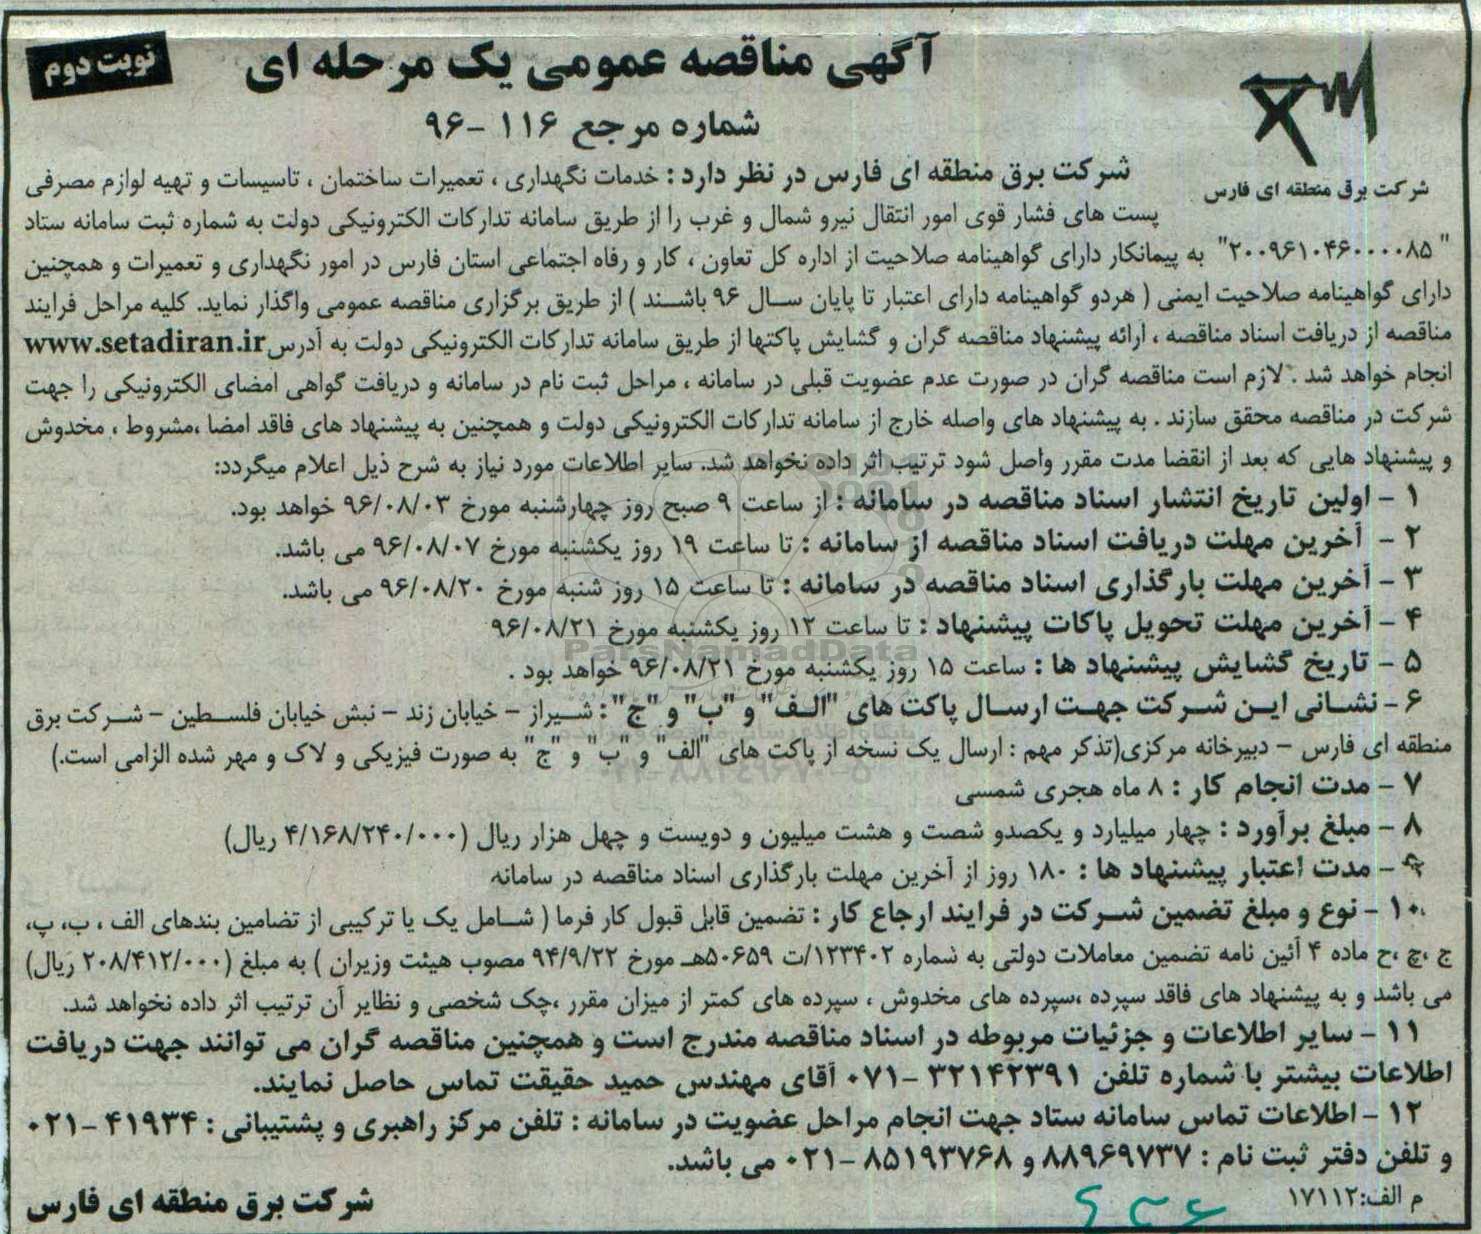 آگهی مناقصه عمومی یک مرحله ای
نوبت دوم
شماره مرجع ۱۱۶ -۹۶
شرکت برق منطقه ای فارس
شرکت برق منطقه ای فارس در نظر دارد : خدمات نگهداری ، تعمیرات ساختمان ، تاسیسات و تهیه لوازم مصرفی
پست های فشار قوی امور انتقال نیرو شمال و غرب را از طریق سامانه تدارکات الکترونیکی دولت به شماره ثبت سامانه ستاد
"۲۰۰۹۶۱۰۴۶۰۰۰۰۸۵" به پیمانکار دارای گواهینامه صلاحیت از اداره کل تعاون ، کار و رفاه اجتماعی استان فارس در امور نگهداری و تعمیرات و همچنین
دارای گواهینامه صلاحیت ایمنی ( هردو گواهینامه دارای اعتبار تا پایان سال ۹۶ باشند ) از طریق برگزاری مناقصه عمومی واگذار نماید. کلیه مراحل فرایند
مناقصه از دریافت اسناد مناقصه ، ارائه پیشنهاد مناقصه گران و گشایش پاکتها از طریق سامانه تدارکات الکترونیکی دولت به آدرس www.setadiran.ir
انجام خواهد شد . لازم است مناقصه گران در صورت عدم عضویت قبلی در سامانه ، مراحل ثبت نام در سامانه و دریافت گواهی امضای الکترونیکی را جهت
شرکت در مناقصه محقق سازند . به پیشنهاد های واصله خارج از سامانه تدارکات الکترونیکی دولت و همچنین به پیشنهاد های فاقد امضا ،مشروط ، مخدوش
و پیشنهاد هایی که بعد از انقضا مدت مقرر واصل شود ترتیب اثر داده نخواهد شد. سایر اطلاعات مورد نیاز به شرح ذیل اعلام میگردد:
۱ - اولین تاریخ انتشار اسناد مناقصه در سامانه : از ساعت ۹ صبح روز چهارشنبه مورخ ۹۶/۰۸/۰۳ خواهد بود.
۲ - آخرین مهلت دریافت اسناد مناقصه از سامانه : تا ساعت ۱۹ روز یکشنبه مورخ ۹۶/۰۸/۰۷ می باشد.
۳ - آخرین مهلت بارگذاری اسناد مناقصه در سامانه : تا ساعت ۱۵ روز شنبه مورخ ۹۶/۰۸/۲۰ می باشد.
۴ - آخرین مهلت تحویل پاکات پیشنهاد : تا ساعت ۱۲ روز یکشنبه مورخ ۹۶/۰۸/۲۱
ParsNamadData
۵ - تاریخ گشایش پیشنهاد ها : ساعت ۱۵ روز یکشنبه مورخ ۹۶/۰۸/۲۱ خواهد بود .
۶ - نشانی این شرکت جهت ارسال پاکت های "الف" و "ب" و "ج" : شیراز - خیابان زند - نبش خیابان فلسطین - شرکت برق
منطقه ای فارس - دبیرخانه مرکزی(تذکر مهم : ارسال یک نسخه از پاکت های "الف" و "ب" و "ج" به صورت فیزیکی و لاک و مهر شده الزامی است.)
۷ - مدت انجام کار : ۸ ماه هجری شمسی
۸ - مبلغ برآورد : چهار میلیارد و یکصدو شصت و هشت میلیون و دویست و چهل هزار ریال (۴/۱۶۸/۲۴۰/۰۰۰ ریال)
۹ - مدت اعتبار پیشنهاد ها : ۱۸۰ روز از آخرین مهلت بارگذاری اسناد مناقصه در سامانه
۱۰ - نوع و مبلغ تضمین شرکت در فرایند ارجاع کار : تضمین قابل قبول کار فرما ( شامل یک یا ترکیبی از تضامین بندهای الف ، ب، پ،
ج ،چ ،ح ماده ۴ آئین نامه تضمین معاملات دولتی به شماره ۱۲۳۴۰۲/ت ۵۰۶۵۹هـ مورخ ۹۴/۹/۲۲ مصوب هیئت وزیران ) به مبلغ (۲۰۸/۴۱۲/۰۰۰ ریال)
می باشد و به پیشنهاد های فاقد سپرده ،سپرده های مخدوش ، سپرده های کمتر از میزان مقرر ،چک شخصی و نظایر آن ترتیب اثر داده نخواهد شد.
۱۱ - سایر اطلاعات و جزئیات مربوطه در اسناد مناقصه مندرج است و همچنین مناقصه گران می توانند جهت دریافت
اطلاعات بیشتر با شماره تلفن ۳۲۱۴۲۳۹۱ -۰۷۱ آقای مهندس حمید حقیقت تماس حاصل نمایند.
۱۲ - اطلاعات تماس سامانه ستاد جهت انجام مراحل عضویت در سامانه : تلفن مرکز راهبری و پشتیبانی : ۴۱۹۳۴ -۰۲۱
و تلفن دفتر ثبت نام : ۸۸۹۶۹۷۳۷ و ۸۵۱۹۳۷۶۸ -۰۲۱ می باشد.
م الف:۱۷۱۱۲
شرکت برق منطقه ای فارس